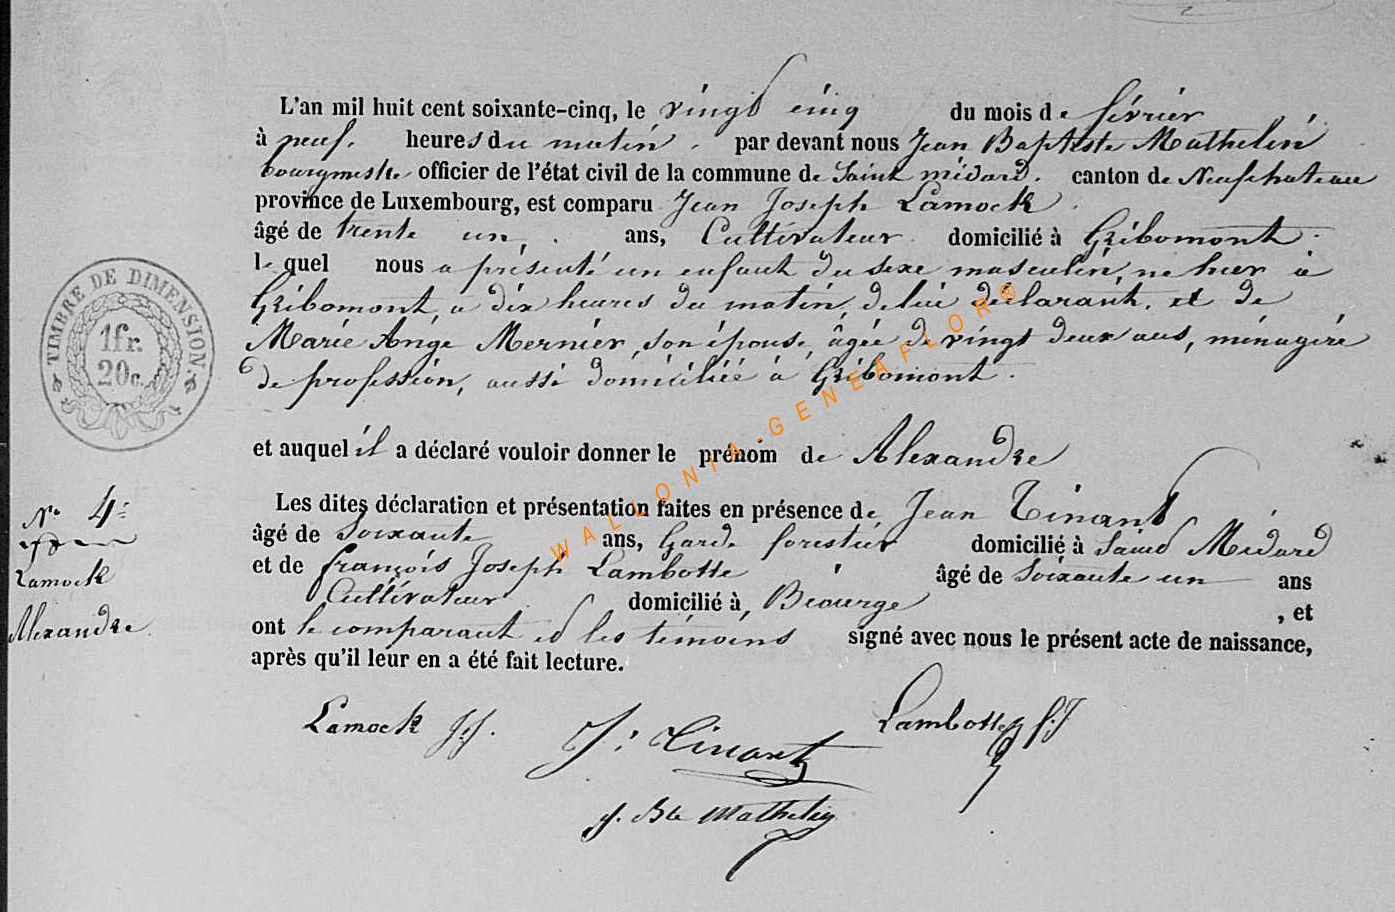 L'an mil huit cent soixante-cinq, le vingt cinq du mois de février
à neuf heures du matin par devant nous Jean Baptiste Mathelin
bourgmestre officier de l'état civil de la commune de Saint médard. canton de Neufchateau
province de Luxembourg, est comparu Jean Joseph Lamock
âgé de trente un, ans, Cultivateur domicilié à Gribomont
lequel nous a présenté un enfant du sexe masculin, né hier à
Gribomont, à dix heures du matin, de lui déclarant, et de
Marie Ange Mernier, son épouse, âgée de vingt deux ans, ménagère
de profession, aussi domiciliée à Gribomont.
et auquel il a déclaré vouloir donner le prénom de Alexandre
Les dites déclaration et présentation faites en présence de Jean Tinant
âgé de Soixante ans, Garde forestier domicilié à Saint Médard
et de françois Joseph Lambotte âgé de Soixante un ans
Cultivateur domicilié à, Biourge, et
ont le comparant et les témoins signé avec nous le présent acte de naissance,
après qu'il leur en a été fait lecture.
Lamock J.J.
J. Tinant
Lambotte f.J
J. Bte Mathelin
TIMBRE DE DIMENSION.
1fr.
20c.
N° 4
Lamock
Alexandre
WALLONIA-GENEAFLOR®